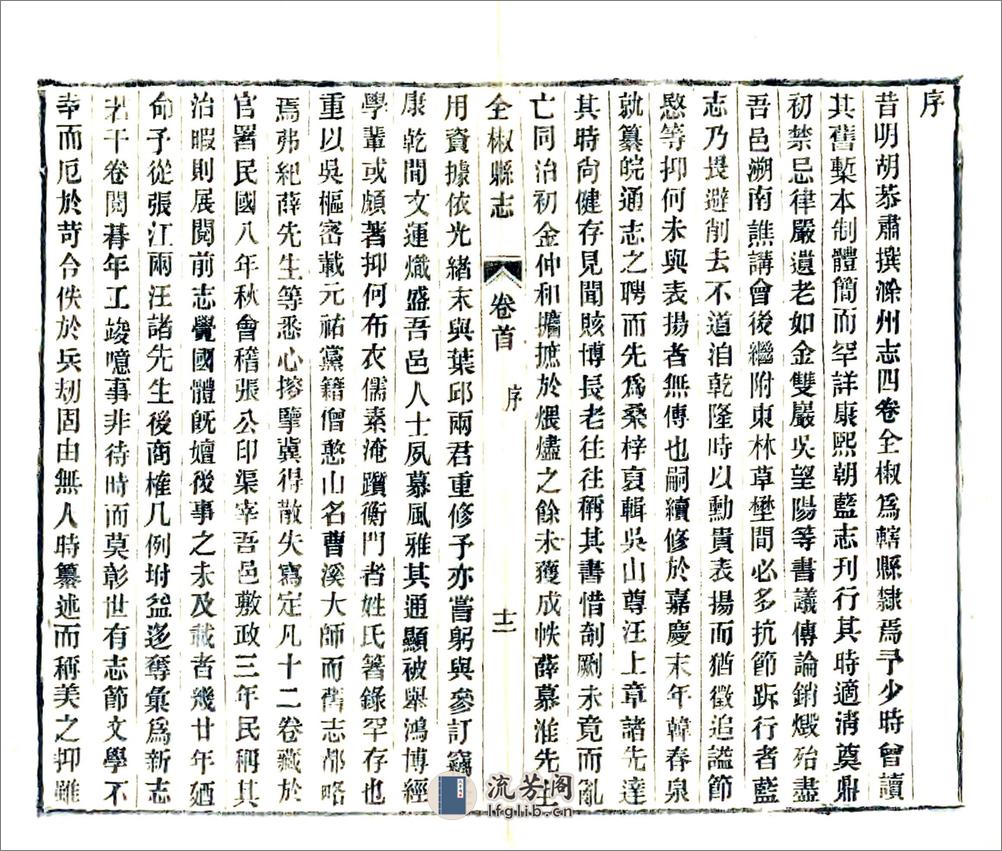 序
昔明胡恭肅撰滁州志四卷全椒爲轄縣隸焉予少時曾讀
其舊槧本制體簡而罕詳康熙朝藍志刊行其時適淸奠鼎
初禁忌律嚴遺老如金雙巖吳望陽等書議傳論銷燬殆盡
吾邑溯南譙講會後繼附東林草壄間必多抗節跅行者藍
志乃畏避削去不道洎乾隆時以勳貴表揚而猶徵追謚節
愍等抑何未與表揚者無傳也嗣續修於嘉慶末年韓春泉
就纂皖通志之聘而先爲桑梓裒輯吳山尊汪上章諸先達
其時尙健存見聞賅博長老往往稱其書惜剞劂未竟而亂
亡同治初金仲和攟摭於煨燼之餘未獲成帙薛慕淮先生
全椒縣志 卷首 序 十二
用資據依光緒末與葉邱兩君重修予亦嘗躬與參訂竊
康乾間文運熾盛吾邑人士夙慕風雅其通顯被舉鴻博經
學輩或頗著抑何布衣儒素淹躓衡門者姓氏箸錄罕存也
重以吳樞密載元祐黨籍僧憨山名曹溪大師而舊志都略
焉弗紀薛先生等悉心搜擘冀得散失寫定凡十二卷藏於
官署民國八年秋會稽張公印渠宰吾邑敷政三年民稱其
治暇則展閱前志覺國體旣嬗後事之未及載者幾廿年廼
命予從張江兩汪諸先生後商榷凡例坿益迻奪彙爲新志
若干卷閱朞年工竣噫事非待時而莫彰世有志節文學不
幸而厄於苛令佚於兵刼固由無人時纂述而稱美之抑雖
流芳阁
lfglib.cn